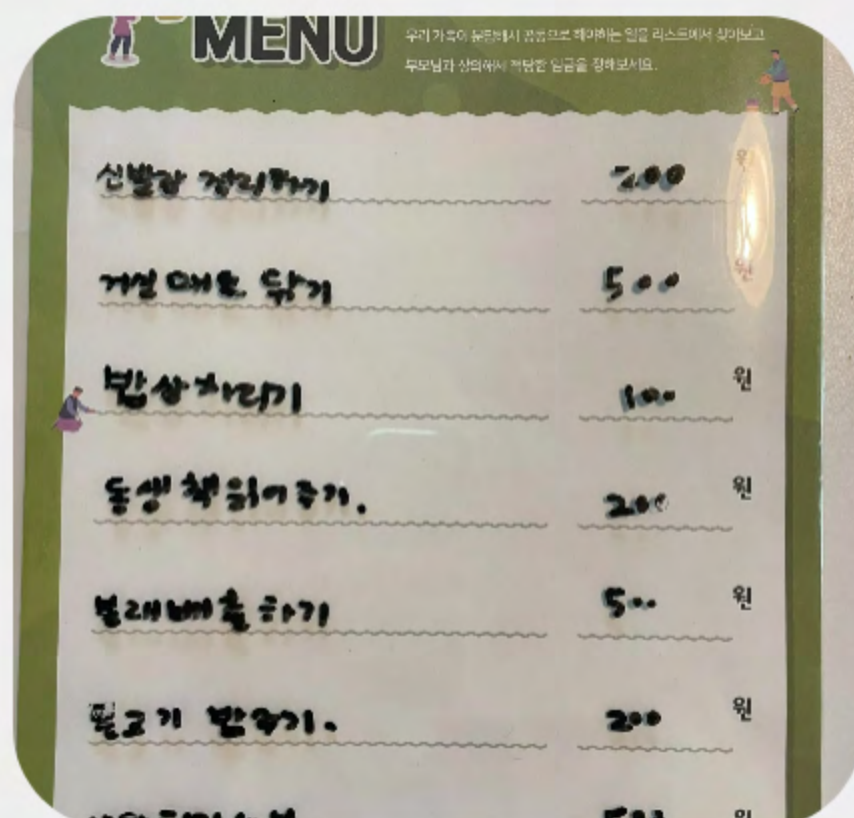 MENU
우리 가족이 분담해서 공동으로 해야하는 일을 리스트에서 찾아보고
부모님과 상의해서 적당한 임금을 정해보세요.
신발장 정리하기 200 원
거실 매트 닦기 500 원
밥상차리기 100 원
동생 책 읽어주기. 200 원
분리배출하기 500 원
물고기 밥주기. 200 원